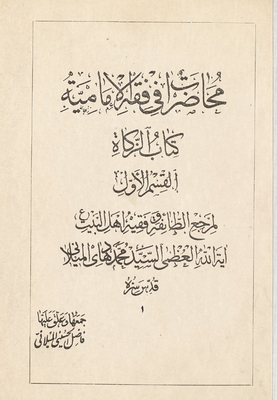 محاضرات في فقه الإمامية
كتاب الزكاة
القسم الأول
لمرجع الطائفة وفقيه أهل البيت ع
آية الله العظمى السيد محمد هادي الميلاني
قدس سره
١
جمعها وعلق عليها
فاضل الحسيني الميلاني